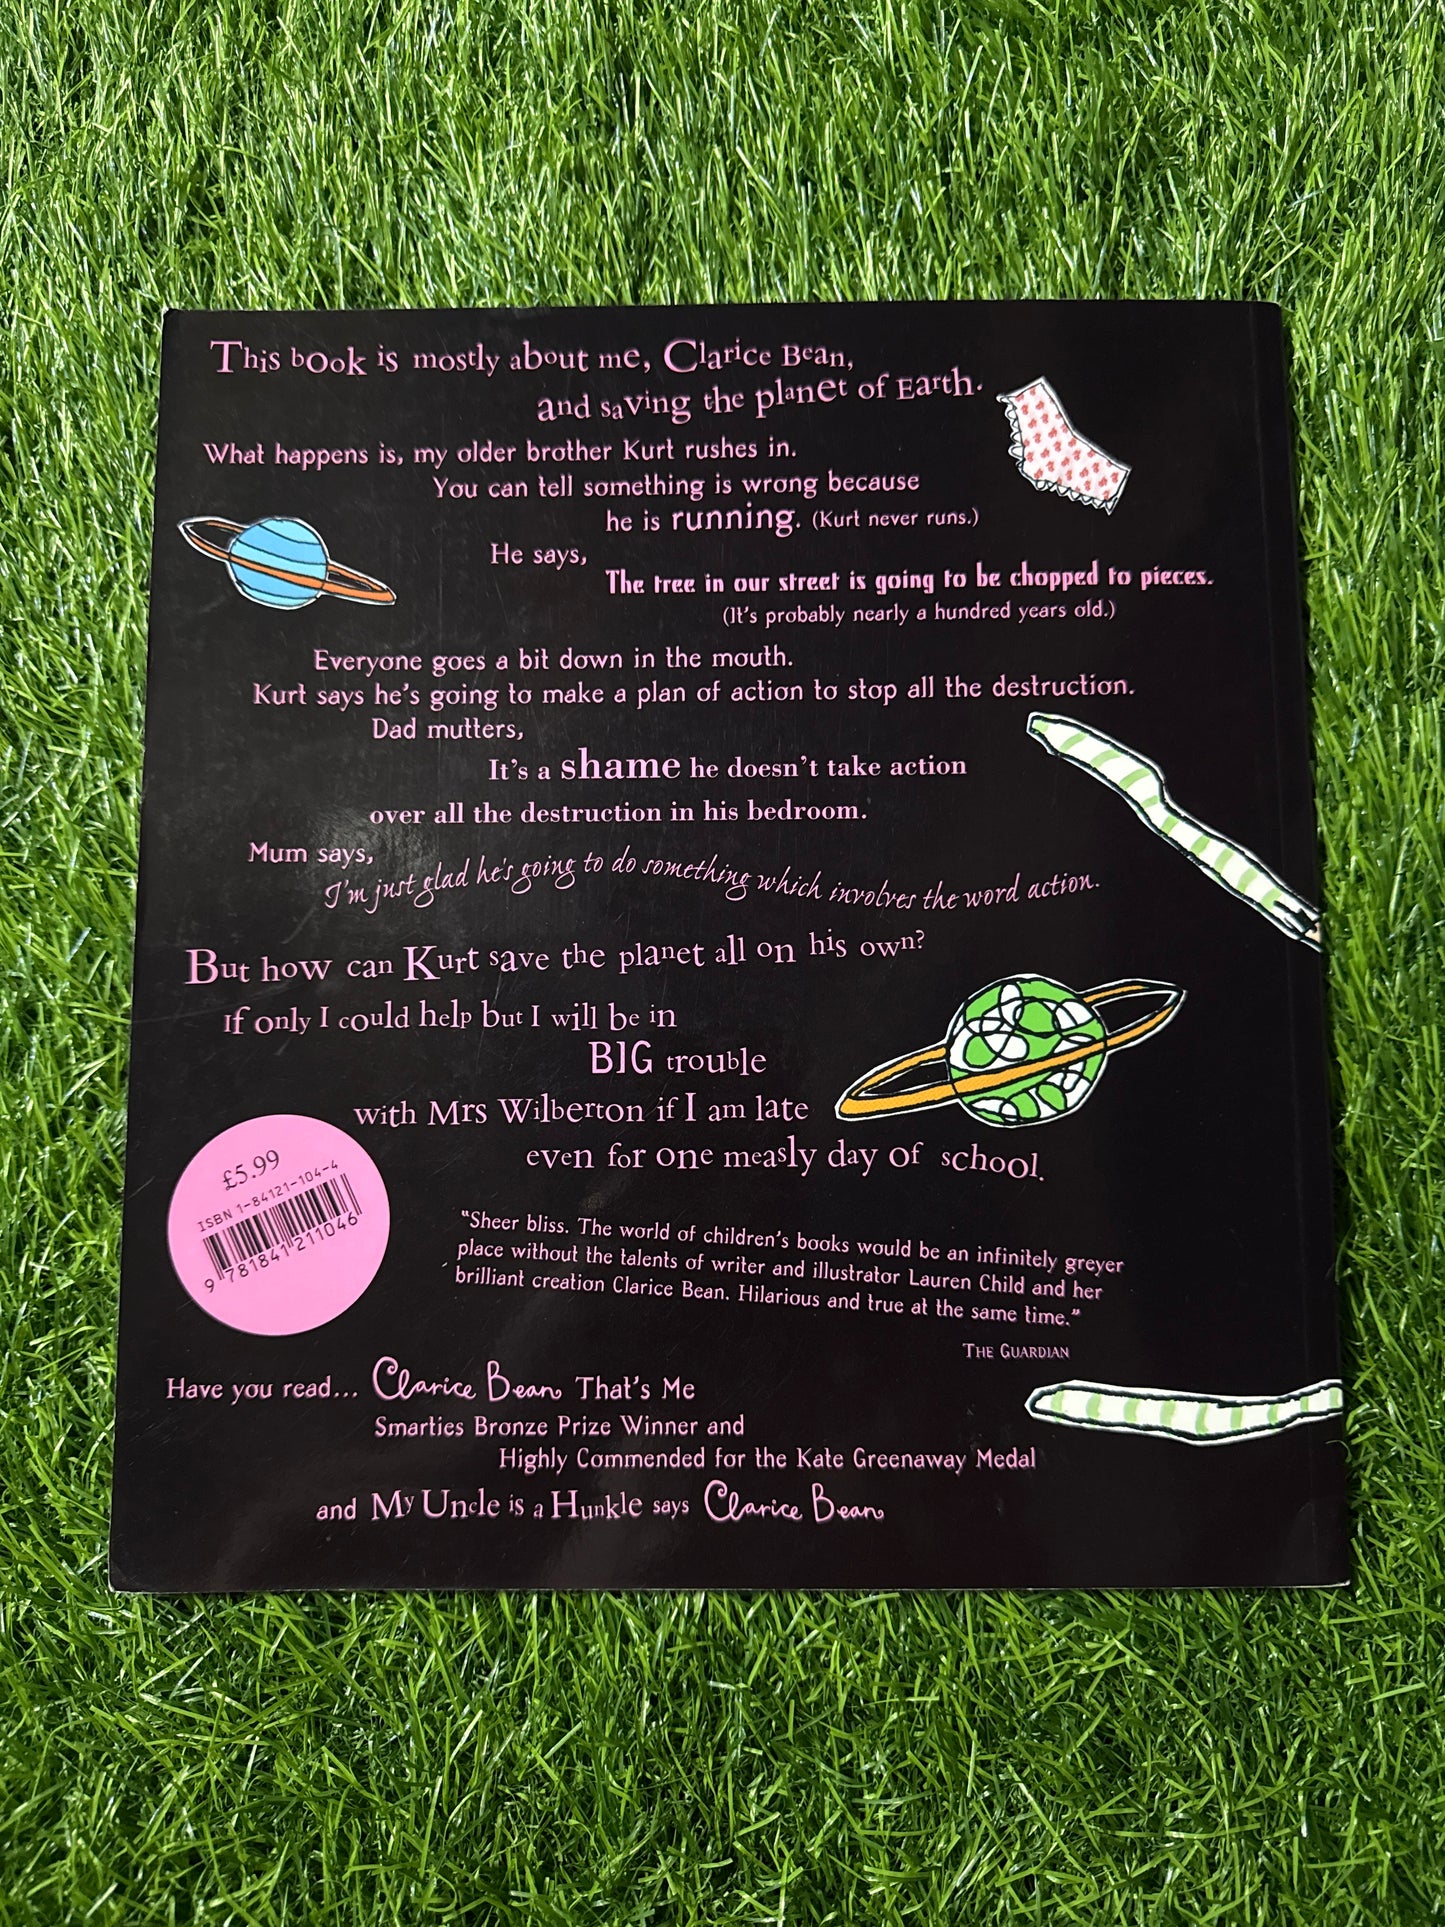 This book is mostly about me, Clarice Bean,
and saving the planet of Earth.
What happens is, my older brother Kurt rushes in.
You can tell something is wrong because
he is running. (Kurt never runs.)
He says,
The tree in our street is going to be chopped to pieces.
(It's probably nearly a hundred years old.)
Everyone goes a bit down in the mouth.
Kurt says he's going to make a plan of action to stop all the destruction.
Dad mutters,
It's a shame he doesn't take action
over all the destruction in his bedroom.
Mum says,
I'm just glad he's going to do something which involves the word action.
But how can Kurt save the planet all on his own?
If only I could help but I will be in
BIG trouble
with Mrs Wilberton if I am late
even for one measly day of school.
£5.99
ISBN 1-84121-104-4
9 781841 211046
"Sheer bliss. The world of children's books would be an infinitely greyer
place without the talents of writer and illustrator Lauren Child and her
brilliant creation Clarice Bean. Hilarious and true at the same time."
THE GUARDIAN
Have you read... Clarice Bean That's Me
Smarties Bronze Prize Winner and
Highly Commended for the Kate Greenaway Medal
and My Uncle is a Hunkle says Clarice Bean